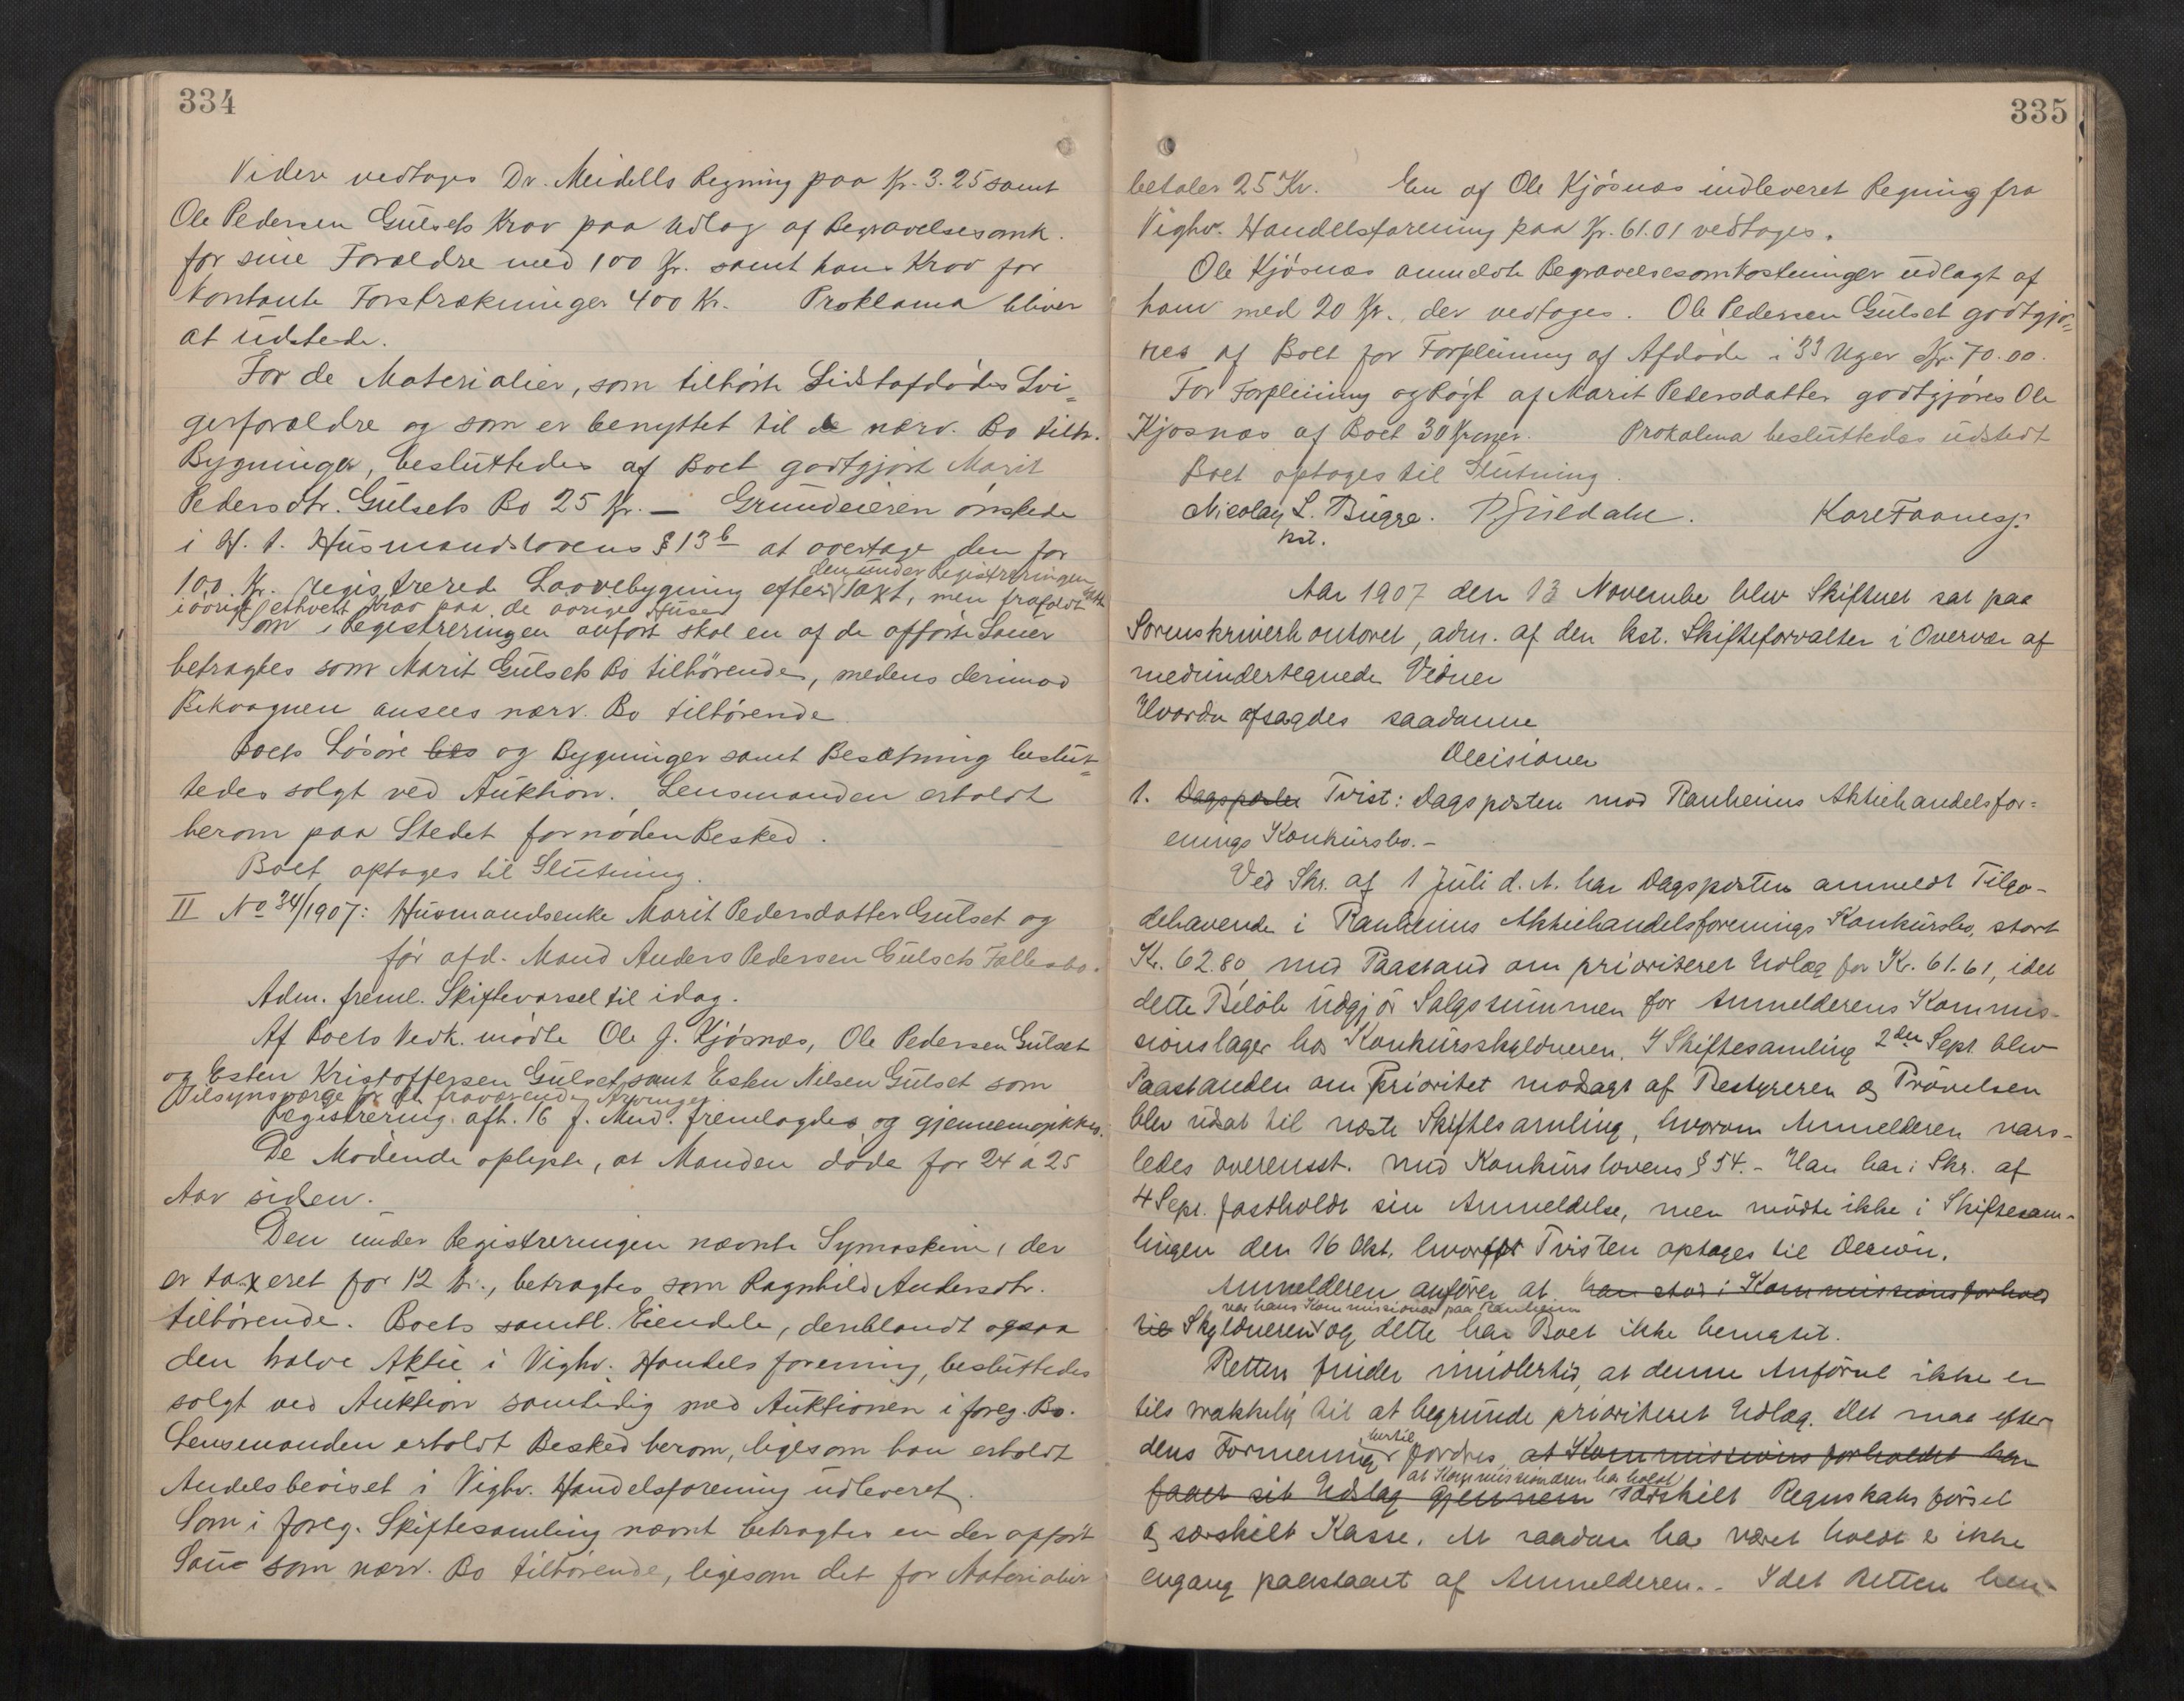 334
Videre vedtoges Dr. Meidells Regning paa Kr. 3.25 samt
Ole Pedersen Gülsets Krav paa Udlæg af Begravelsesomk.
for sine Forældre med 100 Kr. samt hans Krav for
kontante Forstrækninger 400 Kr. Proklama bliver
at üdstede.
For de Materialier, som tilhørte Sidstafdødes Svi=
gerforældre og som er benyttet til de nærv. Bo tilh.
Bygninger, beslüttedes af Boet godtgjort Marit
Pedersdtr. Gülsets Bo 25 Kr. — Gründeieren ønskede
i H. t. Hüsmandslovens § 13 b at overtage den for
den ünder Registreringen
100 Kr. registrerede Laavebygning efter Taxt, men frafaldt
iøvrigt ethvert Krav paa de øvrige Hüse
Som i Registreringen anført skal en af de opførte Sauer
betragtes som Marit Gülsets Bo tilhørende, medens derimod
Bikvognen ansees nærv. Bo tilhørende.
Boets Løsøre bes og Bygninger samt Besætning beslüt=
tedes solgt ved Aüktion. Lensmanden erholdt
herom paa Stedet fornøden Besked.
Boet optoges til Slütning.
II No 34/1907: Hüsmandsenke Marit Pedersdatter Gülset og
før afd. Mand Anders Pedersen Gülsets Fællesbo.
Adm. freml. Skiftevarsel til idag.
Af Boets Vedk. mødte Ole J. Kjøsnæs, Ole Pedersen Gülset
og Esten Kristoffersen Gülset samt Esten Nilsen Gülset som
Tilsynsværge for de fraværende Arvinger.
Registrering afh. 16 f. Mnd. fremlagdes og gjennemgikkes.
De Mødende oplyste, at Manden døde for 24 à 25
Aar siden.
Den ünder Registreringen nævnte Symaskine, der
er taxeret for 12 Kr., betragtes som Ragnhild Andersdtr.
tilhørende. Boets samtl. Eiendele, deriblandt ogsaa
den halve Aktie i Vighv. Handelsforening, beslüttedes
solgt ved Auktion samtidig med Aüktionen i foreg. Bo.
Lensmanden erholdt Besked herom, ligesom han erholdt
Andelsbeviset i Vighv. Handelsforening üdleveret.
Som i foreg. Skiftesamling nævnt betragtes en der opført
Saue som nærv. Bo tilhørende, ligesom det for Materialier
335
betaler 25 Kr. En af Ole Kjøsnæs indleveret Regning fra
Vighv. Handelsforening paa Kr. 61.01 vedtoges.
Ole Kjøsnæs anmeldte Begravelsesomkostninger üdlagt af
ham med 20 Kr., der vedtoges. Ole Pedersen Gülset godtgjø=
res af Boet for Forpleining af Afdøde i 33 Uger Kr. 70.00.
For Forpleining og Røgt af Marit Pedersdatter godtgjøres Ole
Kjøsnæs af Boet 30 Kroner. Prokalma beslüttedes üdstedt
Boet optoges til Slütning.
Nicolay L. Bügge. Kaare Faanes.
kst.
Aar 1907 den 13 November blev Skifteret sat paa
Sorenskriverkontoret, adm. af den kst. Skifteforvalter i Overvær af
medündertegnede Vidner
Hvorda afsagdes saadanne
Decisioner
1. Dagsposten Tvist: Dagsposten mod Ranheims Aktiehandelsfor=
enings Konkürsbo. -
Ved Skr. af 1 Jüli d. A. har Dagsposten anmeldt Tilgo-
dehavende i Ranheims Aktiehandelsforenings Konkürsbo, stort
Kr. 62.80, med Paastand om prioriteret Udlæg for Kr. 61.61, idet
dette Beløb üdgjør Salgssümmen for Anmelderens Kommis-
sionslager hos Konkürsskyldneren. I Skiftesamling 2den Sept. blev
Paastanden om Prioritet modsagt af Bestyreren og Prøvelsen
blev üdsat til næste Skiftesamling, hvorom Anmelderen vars-
ledes overensst. med Konkürslovens § 54. - Han har i Skr. af
4 Sept. fastholdt sin Anmeldelse, men mødte ikke i Skiftesam-
lingen den 16 Okt. hvorfor Tvisten optoges til Decision.
Anmelderen anfører at han stod i Kommissionsforhold
var hans Kommissionær paa Ranheim
til Skyldneren og dette har Boet ikke benægtet.
Retten finder imidlertid, at denne Anførsel ikke er
tilstrækkelig til at begründe prioriteret Udlæg. Det maa efter
hertil
dens Formening fordres, at Kommissionsforholdet har
at Kommissionæren har holdt
faaet sit Udslag gjennem særskilt Regnskabsførsel
og særskilt Kasse. At saadan har været holdt er ikke
engang paastaaet af Anmelderen. - Idet Retten hen-